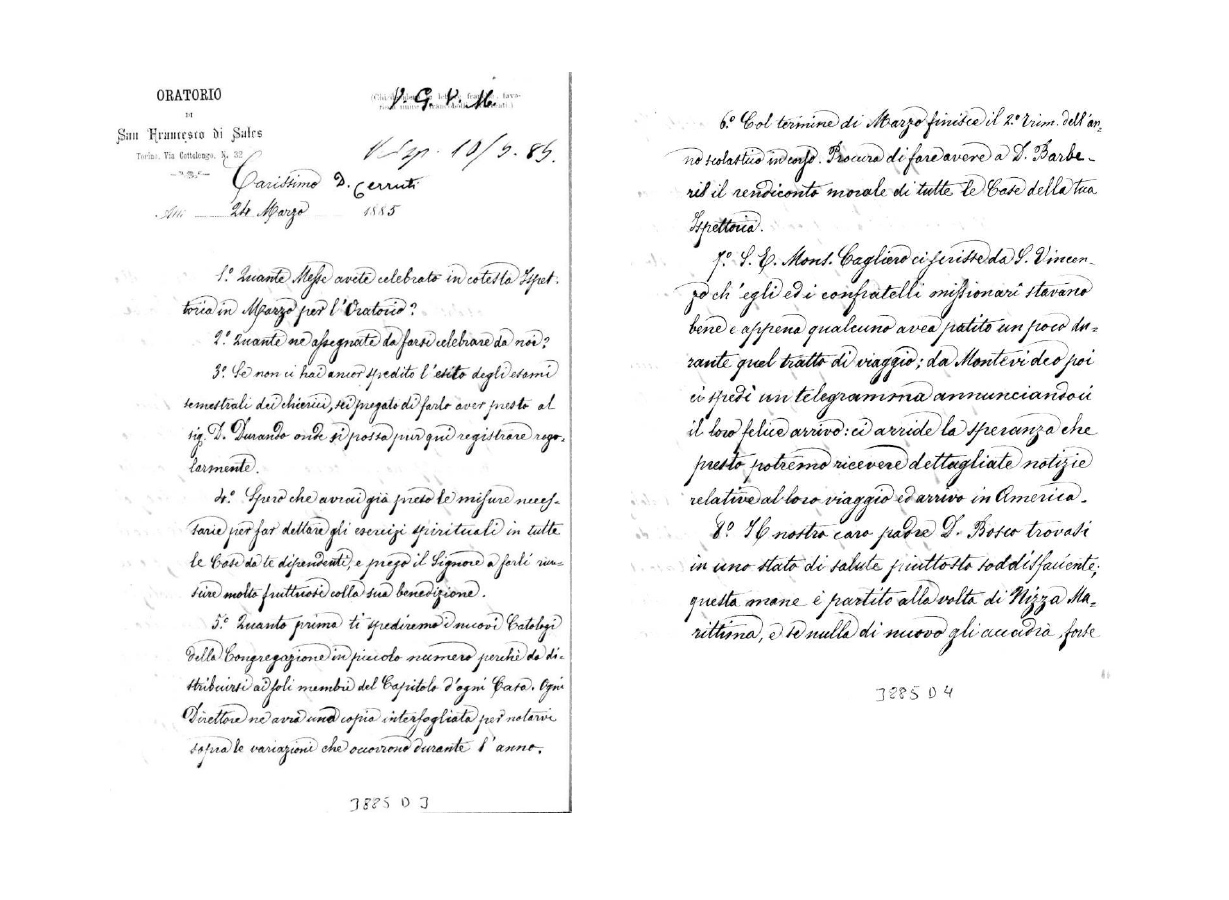 ORATORIO
DI
San Francesco di Sales
Torino, Via Cottolengo, N. 32
V. G. V. M.
Risp. 10/5. 85.
Carissimo D. Cerruti
24 Marzo 1885
1.º Quante Messe avete celebrato in cotesta Ispet-
toria in Marzo per l'Oratorio?
2.º Quante ne assegnate da farsi celebrare da noi?
3.º Se non ci hai ancor spedito l'esito degli esami
semestrali dei chierici, sei pregato di farlo aver presto al
sig. D. Durando onde si possa pur qui registrare rego-
larmente.
4.º Spero che avrai già preso le misure neces-
sarie per far dettare gli esercizi spirituali in tutte
le Case da te dipendenti, e prego il Signore a farli riu-
scire molto fruttuosi colla sua benedizione.
5.º Quanto prima ti spediremo i nuovi Catalogi
della Congregazione in piccolo numero perchè da di-
stribuirsi ai soli membri del Capitolo d'ogni Casa. Ogni
Direttore ne avrà una copia interfogliata per notarvi
sopra le variazioni che occorrono durante l'anno.
3885 D 3
6.º Col termine di Marzo finisce il 2.º Trim. dell'an-
no scolastico in corso. Procura di fare avere a D. Barbe-
ris il rendiconto morale di tutte le Case della tua
Ispettoria.
7.º S. E. Mons. Cagliero ci scrisse da S. Vincen-
zo ch'egli ed i confratelli missionari stavano
bene e appena qualcuno avea patito un poco du-
rante quel tratto di viaggio; da Montevideo poi
ci spedì un telegramma annunciandoci
il loro felice arrivo: ci arride la speranza che
presto potremo ricevere dettagliate notizie
relative al loro viaggio ed arrivo in America.
8.º Il nostro caro padre D. Bosco trovasi
in uno stato di salute piuttosto soddisfaciente;
questa mane è partito alla volta di Nizza Ma-
rittima, e se nulla di nuovo gli accadrà, forse
3885 D 4